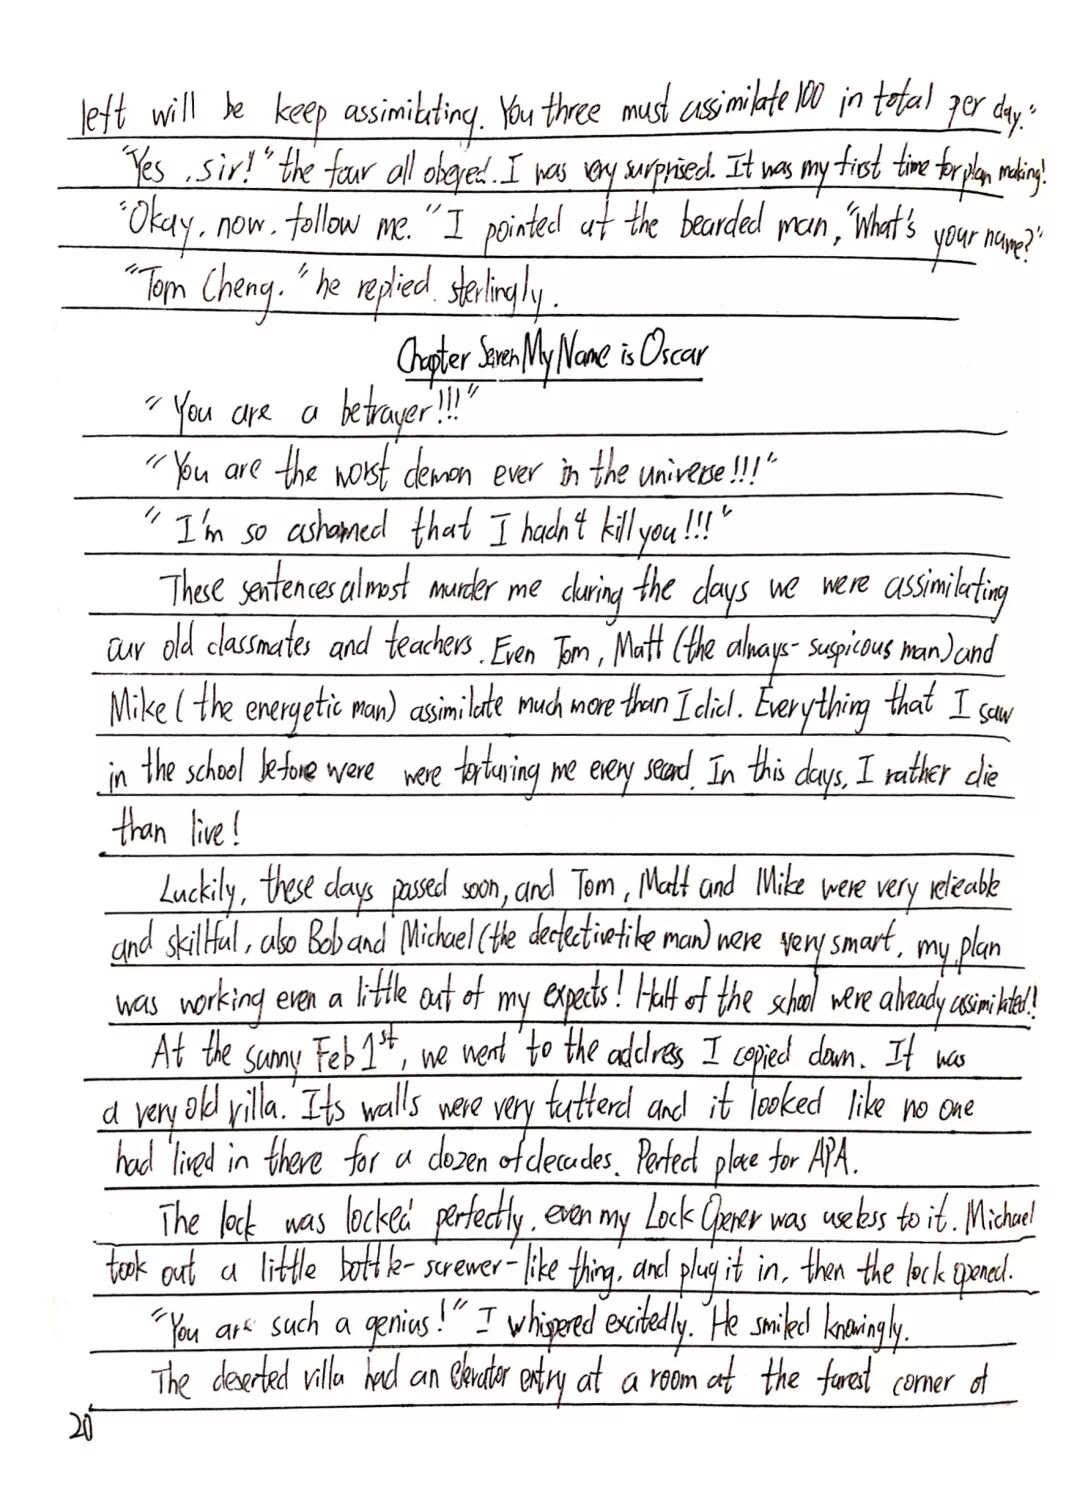 left will be keep assimilating. You three must assimilate 100 in total per day."
"Yes, sir!" the four all obeyed. I was very surprised. It was my first time for plan making!
"Okay, now, follow me." I pointed at the bearded man, "What's your name?"
"Tom Cheng." he replied sterlingly.
Chapter Seven My Name is Oscar
"You are a betrayer!!!"
"You are the worst demon ever in the universe!!!"
"I'm so ashamed that I hadn't kill you!!!"
These sentences almost murder me during the days we were assimilating
our old classmates and teachers. Even Tom, Matt (the always-suspicous man) and
Mike (the energetic man) assimilate much more than I did. Everything that I saw
in the school before were were torturing me every second. In this days, I rather die
than live!
Luckily, these days passed soon, and Tom, Matt and Mike were very relieable
and skillful, also Bob and Michael (the dectective-like man) were very smart, my plan
was working even a little out of my expects! Half of the school were already assimilated!
At the sunny Feb 1st, we went to the address I copied down. It was
a very old villa. Its walls were very tatterd and it looked like no one
had lived in there for a dozen of decades. Perfect place for APA.
The lock was locked perfectly, even my Lock Opener was useless to it. Michael
took out a little bottle-screwer-like thing, and plug it in, then the lock opened.
"You are such a genius!" I whispered excitedly. He smiled knowingly.
The deserted villa had an elevator entry at a room at the farest corner of
20